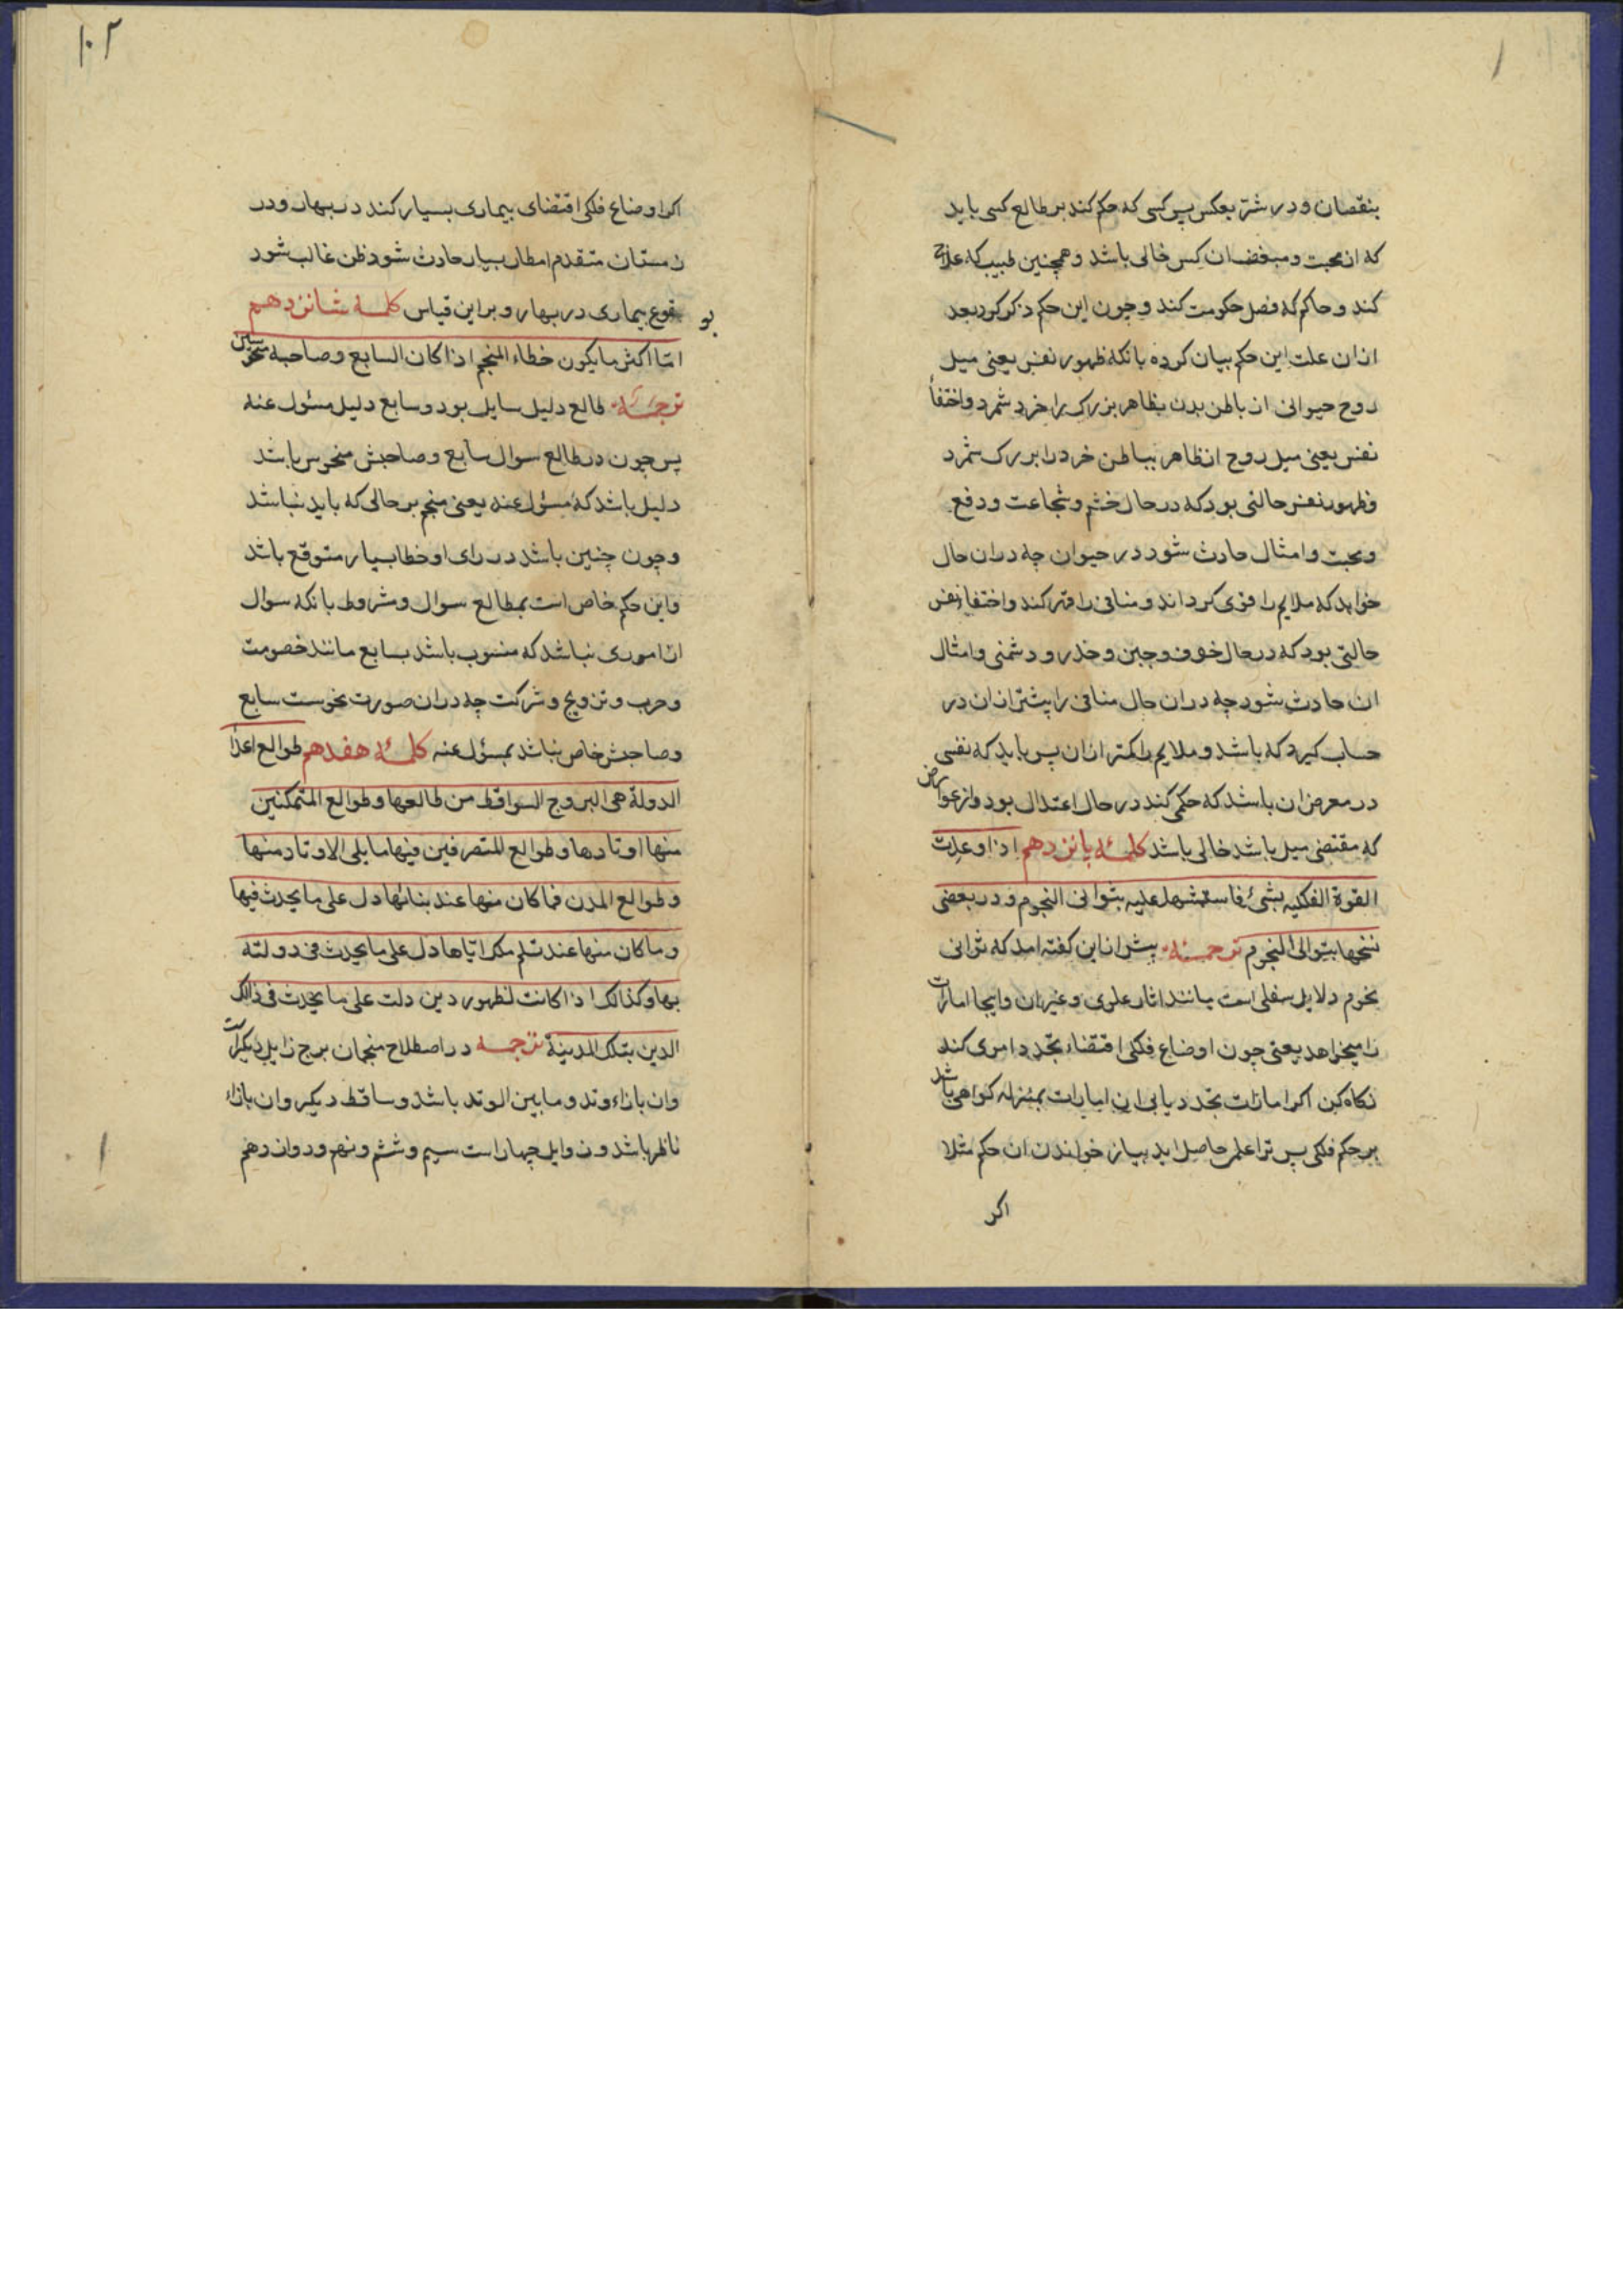 بنقصان و در شرّ بعکس پس کسی که حکم کند بر طالع کسی باید
که از محبت و مبغض ان کس خالی باشد و همچنین طبیب که علاج
کند و حاکم که فصل حکومت کند و چون این حکم ذکر کرد بعد
ازان علت این حکم بیان کرده بانکه ظهور نفس یعنی میل
روح حیوانی از باطن بدن بظاهر بزرک را خرد شمرد و اختفأ
نفس یعنی میل روح از ظاهر بباطن خرد را بزرک شمرد
و ظهور نفس حالتی بود که در حال خشم و شجاعت و دفع
و محبت و امثال حادث شود در حیوان چه دران حال
خواهد که ملایم را قوی کرداند و منافی را قهر کند و اختفا نفس
حالتی بود که در حال خوف و جبن و حذر و دشمنی و امثال
ان حادث شود چه دران حال منافی را پیشتر ازان در
حساب کیرد که باشد و ملایم را کمتر ازان پس باید که نفسی
در معرض ان باشد که حکمی کند در حال اعتدال بود و از عوارض
که مقتضی میل باشد خالی باشد کلمهٔ پانزدهم اذا وعدت
القوة الفلکیه بشیٔ فاستشهد علیه بثوانی النجوم و در بعضی
نسخها بتوالی النجوم ترجمه پیش ازاین کفته امد که ثوانی
نجوم دلایل سفلی است مانند اثار علوی و غیر ان و اینجا امارات
را میخواهد یعنی چون اوضاع فلکی اقتضاء تجدد امری کند
نکاه کن اکر امارات تجدد یابی ان امارات بمنزله کواهی باشد
بر حکم فلکی پس ترا علم حاصل اید بیاز خواندن ان حکم مثلا
اکر
۱۰۲
اکر اوضاع فلکی اقتضای بیماری بسیار کند در بهار و در
زمستان متقدم امطار بسیار حادث شود ظن غالب شود
بوقوع بیماری در بهار و براین قیاس کلمه شانزدهم
امّا اکثر مایکون خطاء المنجم اذا کان السابع و صاحبه منحوسین
ترجمه طالع دلیل سایل بود و سابع دلیل مسئول عنه
پس چون در طالع سوال سابع و صاحبش منحوس باشد
دلیل باشد که مسئول عنه یعنی منجم بر حالی که باید نباشد
و چون چنین باشد در رای او خطا بسیار متوقع باشد
و این حکم خاص است بمطالع سوال و شروط بانکه سوال
از اموری نباشد که منسوب باشد بسابع مانند خصومت
و حرب و تزویج و شرکت چه دران صورت نحوست سابع
و صاحبش خاص نباشد بمسئول عنه کلمهٔ هفدهم طوالع اعدأ
الدولة هی البروج السواقط من طالعها و طوالع المتمکنین
منها اوتادها و طوالع المتصرفین فیها مایلی الاوتاد منها
و طوالع المدن فما کان منها عند بنائها دل علی ما یحدث فیها
و ما کان منها عند تسلم ملک ایاها دل علی ما یحدث فی دولته
بها و کذالک اذا کانت لظهور دین دلت علی ما یحدث فی ذالک
الدین بتلک المدینة ترجمه در اصطلاح منجمان برج زایل دیکر است
وان بازاء وتد و مابین الوتد باشد و ساقط دیکر وان بازاء
ناظر باشد و زوایل چهار است سیم و ششم و نهم و دوازدهم